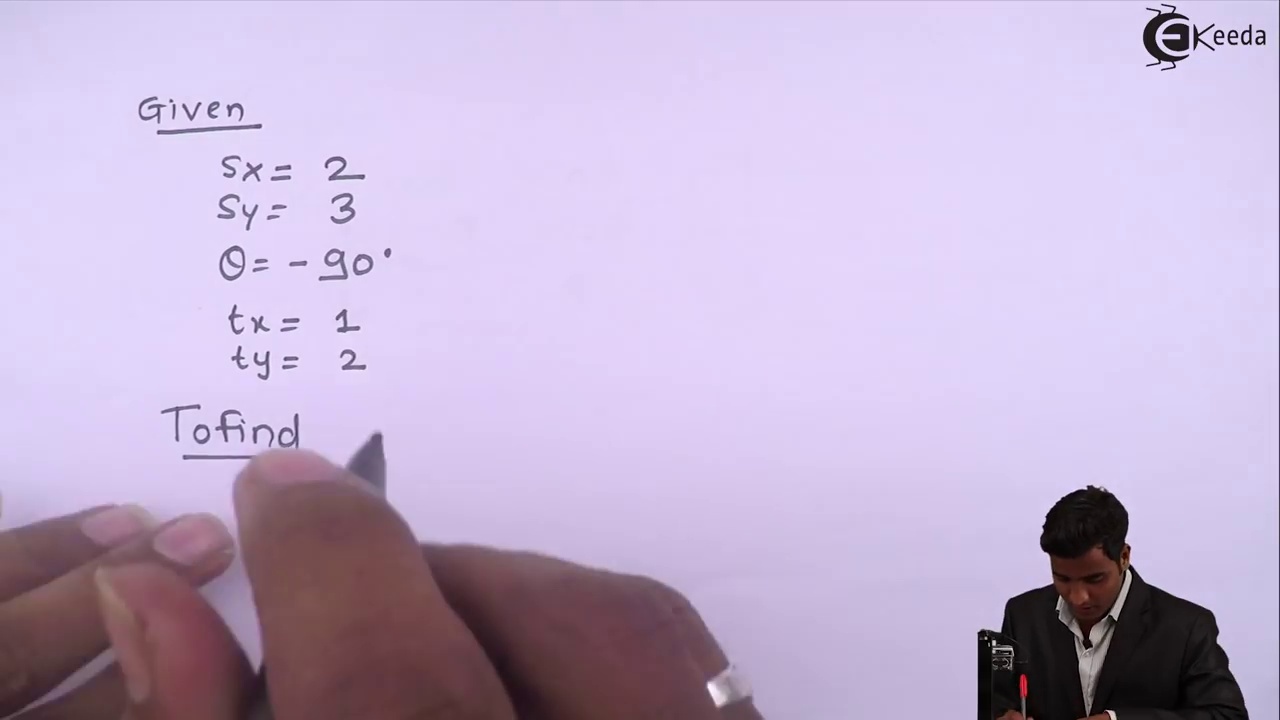 EKeeda
Given
Sx = 2
Sy = 3
θ = - 90°
tx = 1
ty = 2
To find